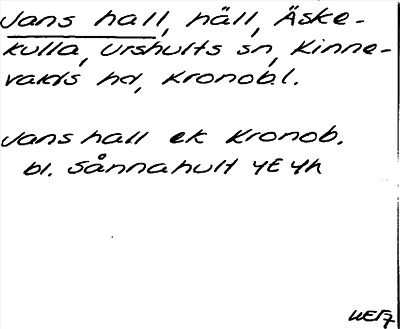 Jans hall, häll, Äske-
kulla, Urshults sn, Kinne-
valds hd, Kronob.l.
Jans hall ek Kronob.
bl. Sånnahult 4E 4h